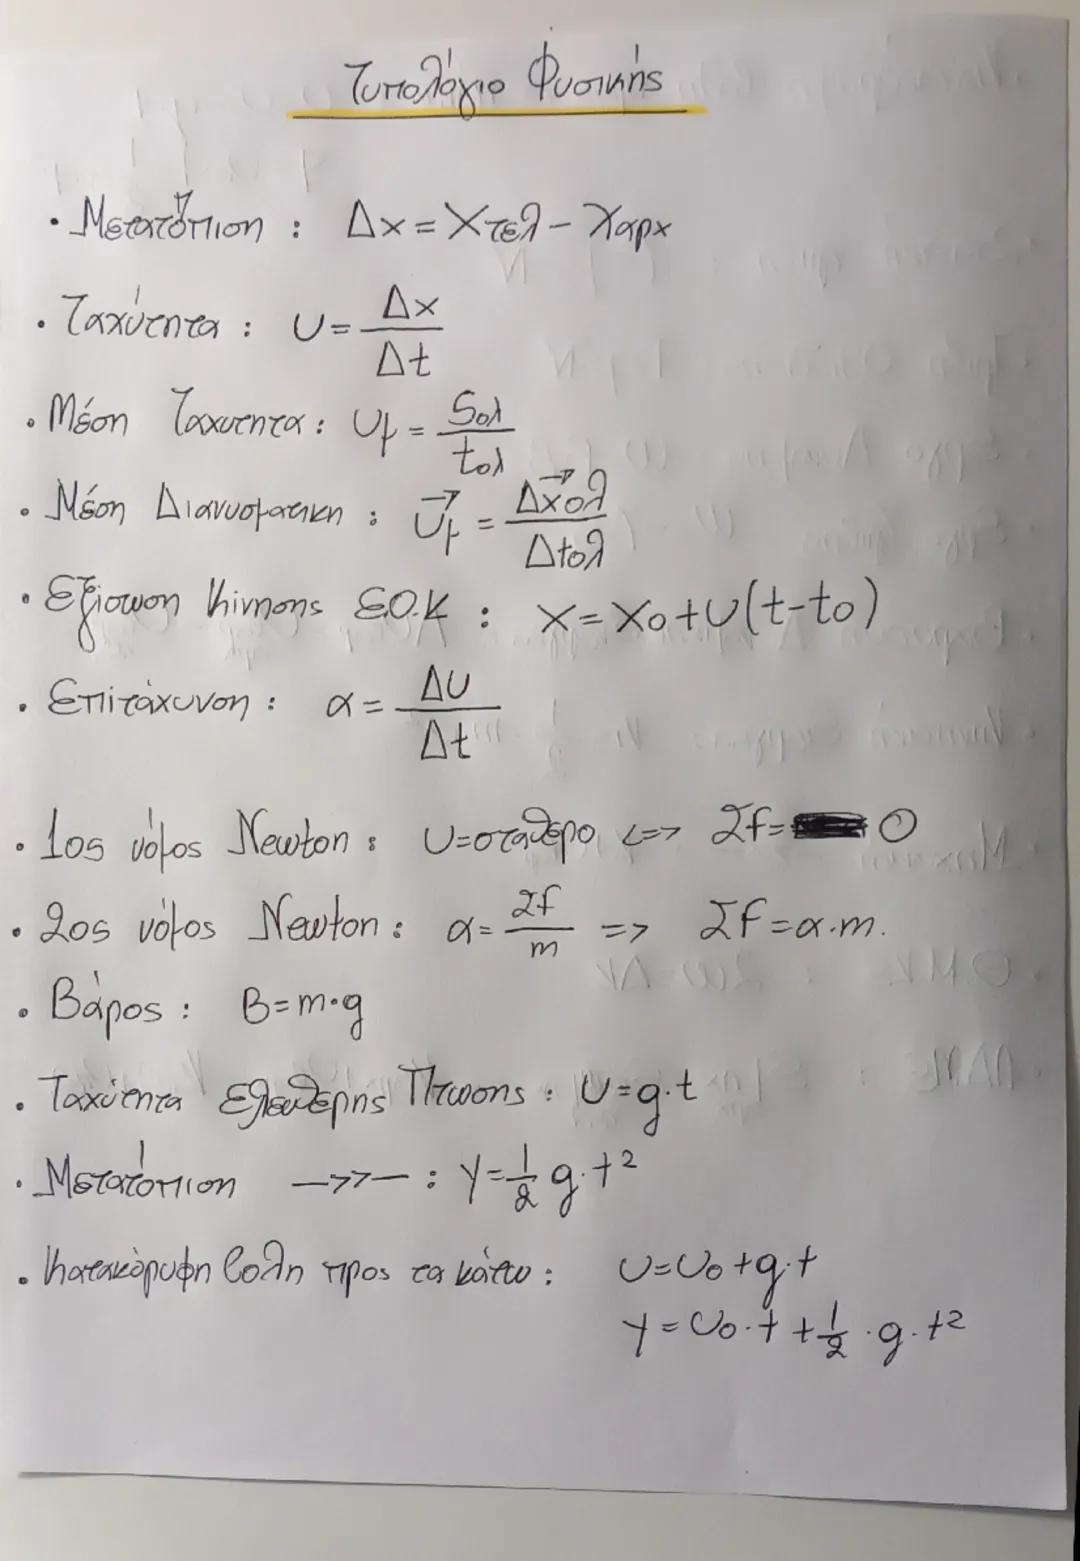 Τυπολόγιο Φυσικής
• Μετατόπιση : Δx = Xτελ - Xαρχ
• Ταχύτητα : υ = Δx / Δt
• Μέση Ταχυτητα : υμ = Sολ / tολ
• Μέση Διανυσματικη : υμ⃗ = Δx⃗ολ / Δtολ
• Εξίσωση Κίνησης Ε.Ο.Κ : x = xο + υ(t-tο)
• Επιτάχυνση : α = Δυ / Δt
• 1ος νόμος Newton : υ=σταθερο <=> Σf = 0
• 2ος νόμος Newton : α = Σf / m => ΣF = α·m.
• Βάρος : Β = m·g
• Ταχύτητα Ελευθερης Πτωσης : υ = g·t
• Μετατόπιση —>>— : y = 1/2 g·t²
• Κατακόρυφη βολη προς τα κάτω : υ = υο + g·t
y = υο·t + 1/2 · g·t²